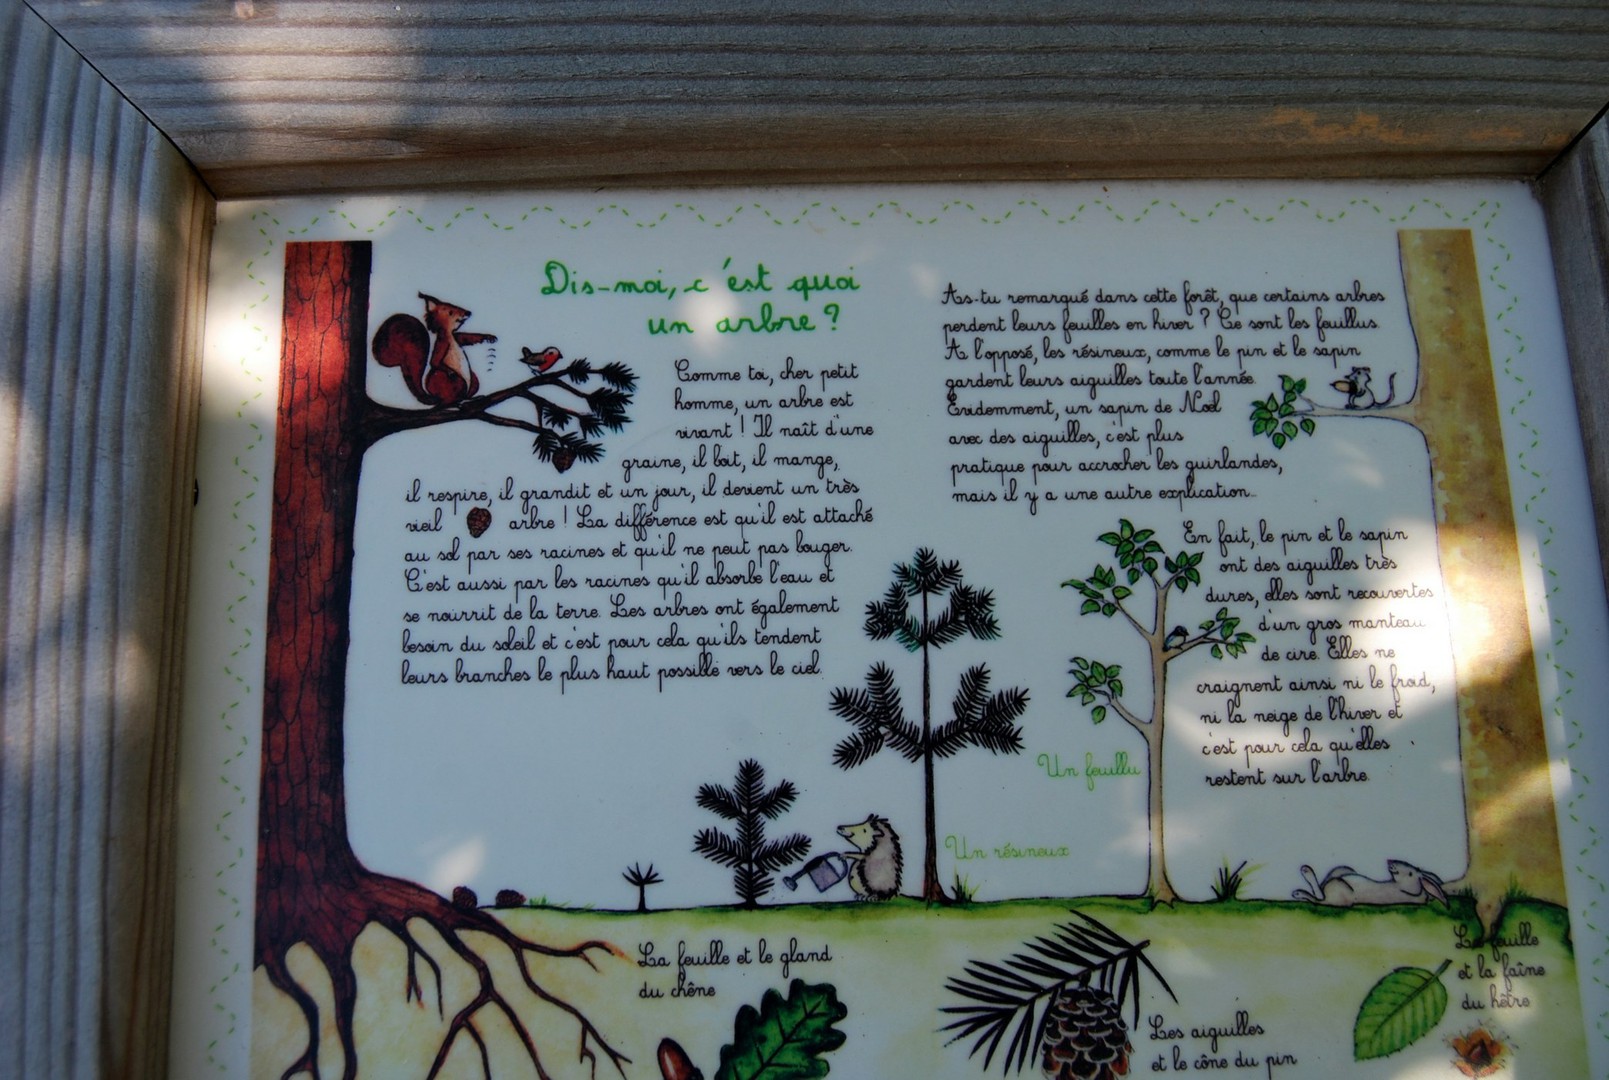 Dis-moi, c'est quoi
un arbre ?
Comme toi, cher petit
homme, un arbre est
vivant ! Il naît d'une
graine, il boit, il mange,
il respire, il grandit et un jour, il devient un très
vieil arbre ! La différence est qu'il est attaché
au sol par ses racines et qu'il ne peut pas bouger.
C'est aussi par les racines qu'il absorbe l'eau et
se nourrit de la terre. Les arbres ont également
besoin du soleil et c'est pour cela qu'ils tendent
leurs branches le plus haut possible vers le ciel.
As-tu remarqué dans cette forêt, que certains arbres
perdent leurs feuilles en hiver ? Ce sont les feuillus.
A l'opposé, les résineux, comme le pin et le sapin
gardent leurs aiguilles toute l'année.
Evidemment, un sapin de Noël
avec des aiguilles, c'est plus
pratique pour accrocher les guirlandes,
mais il y a une autre explication...
En fait, le pin et le sapin
ont des aiguilles très
dures, elles sont recouvertes
d'un gros manteau
de cire. Elles ne
craignent ainsi ni le froid,
ni la neige de l'hiver et
c'est pour cela qu'elles
restent sur l'arbre.
Un feuillu
Un résineux
La feuille et le gland
du chêne
Les aiguilles
et le cône du pin
La feuille
et la faîne
du hêtre